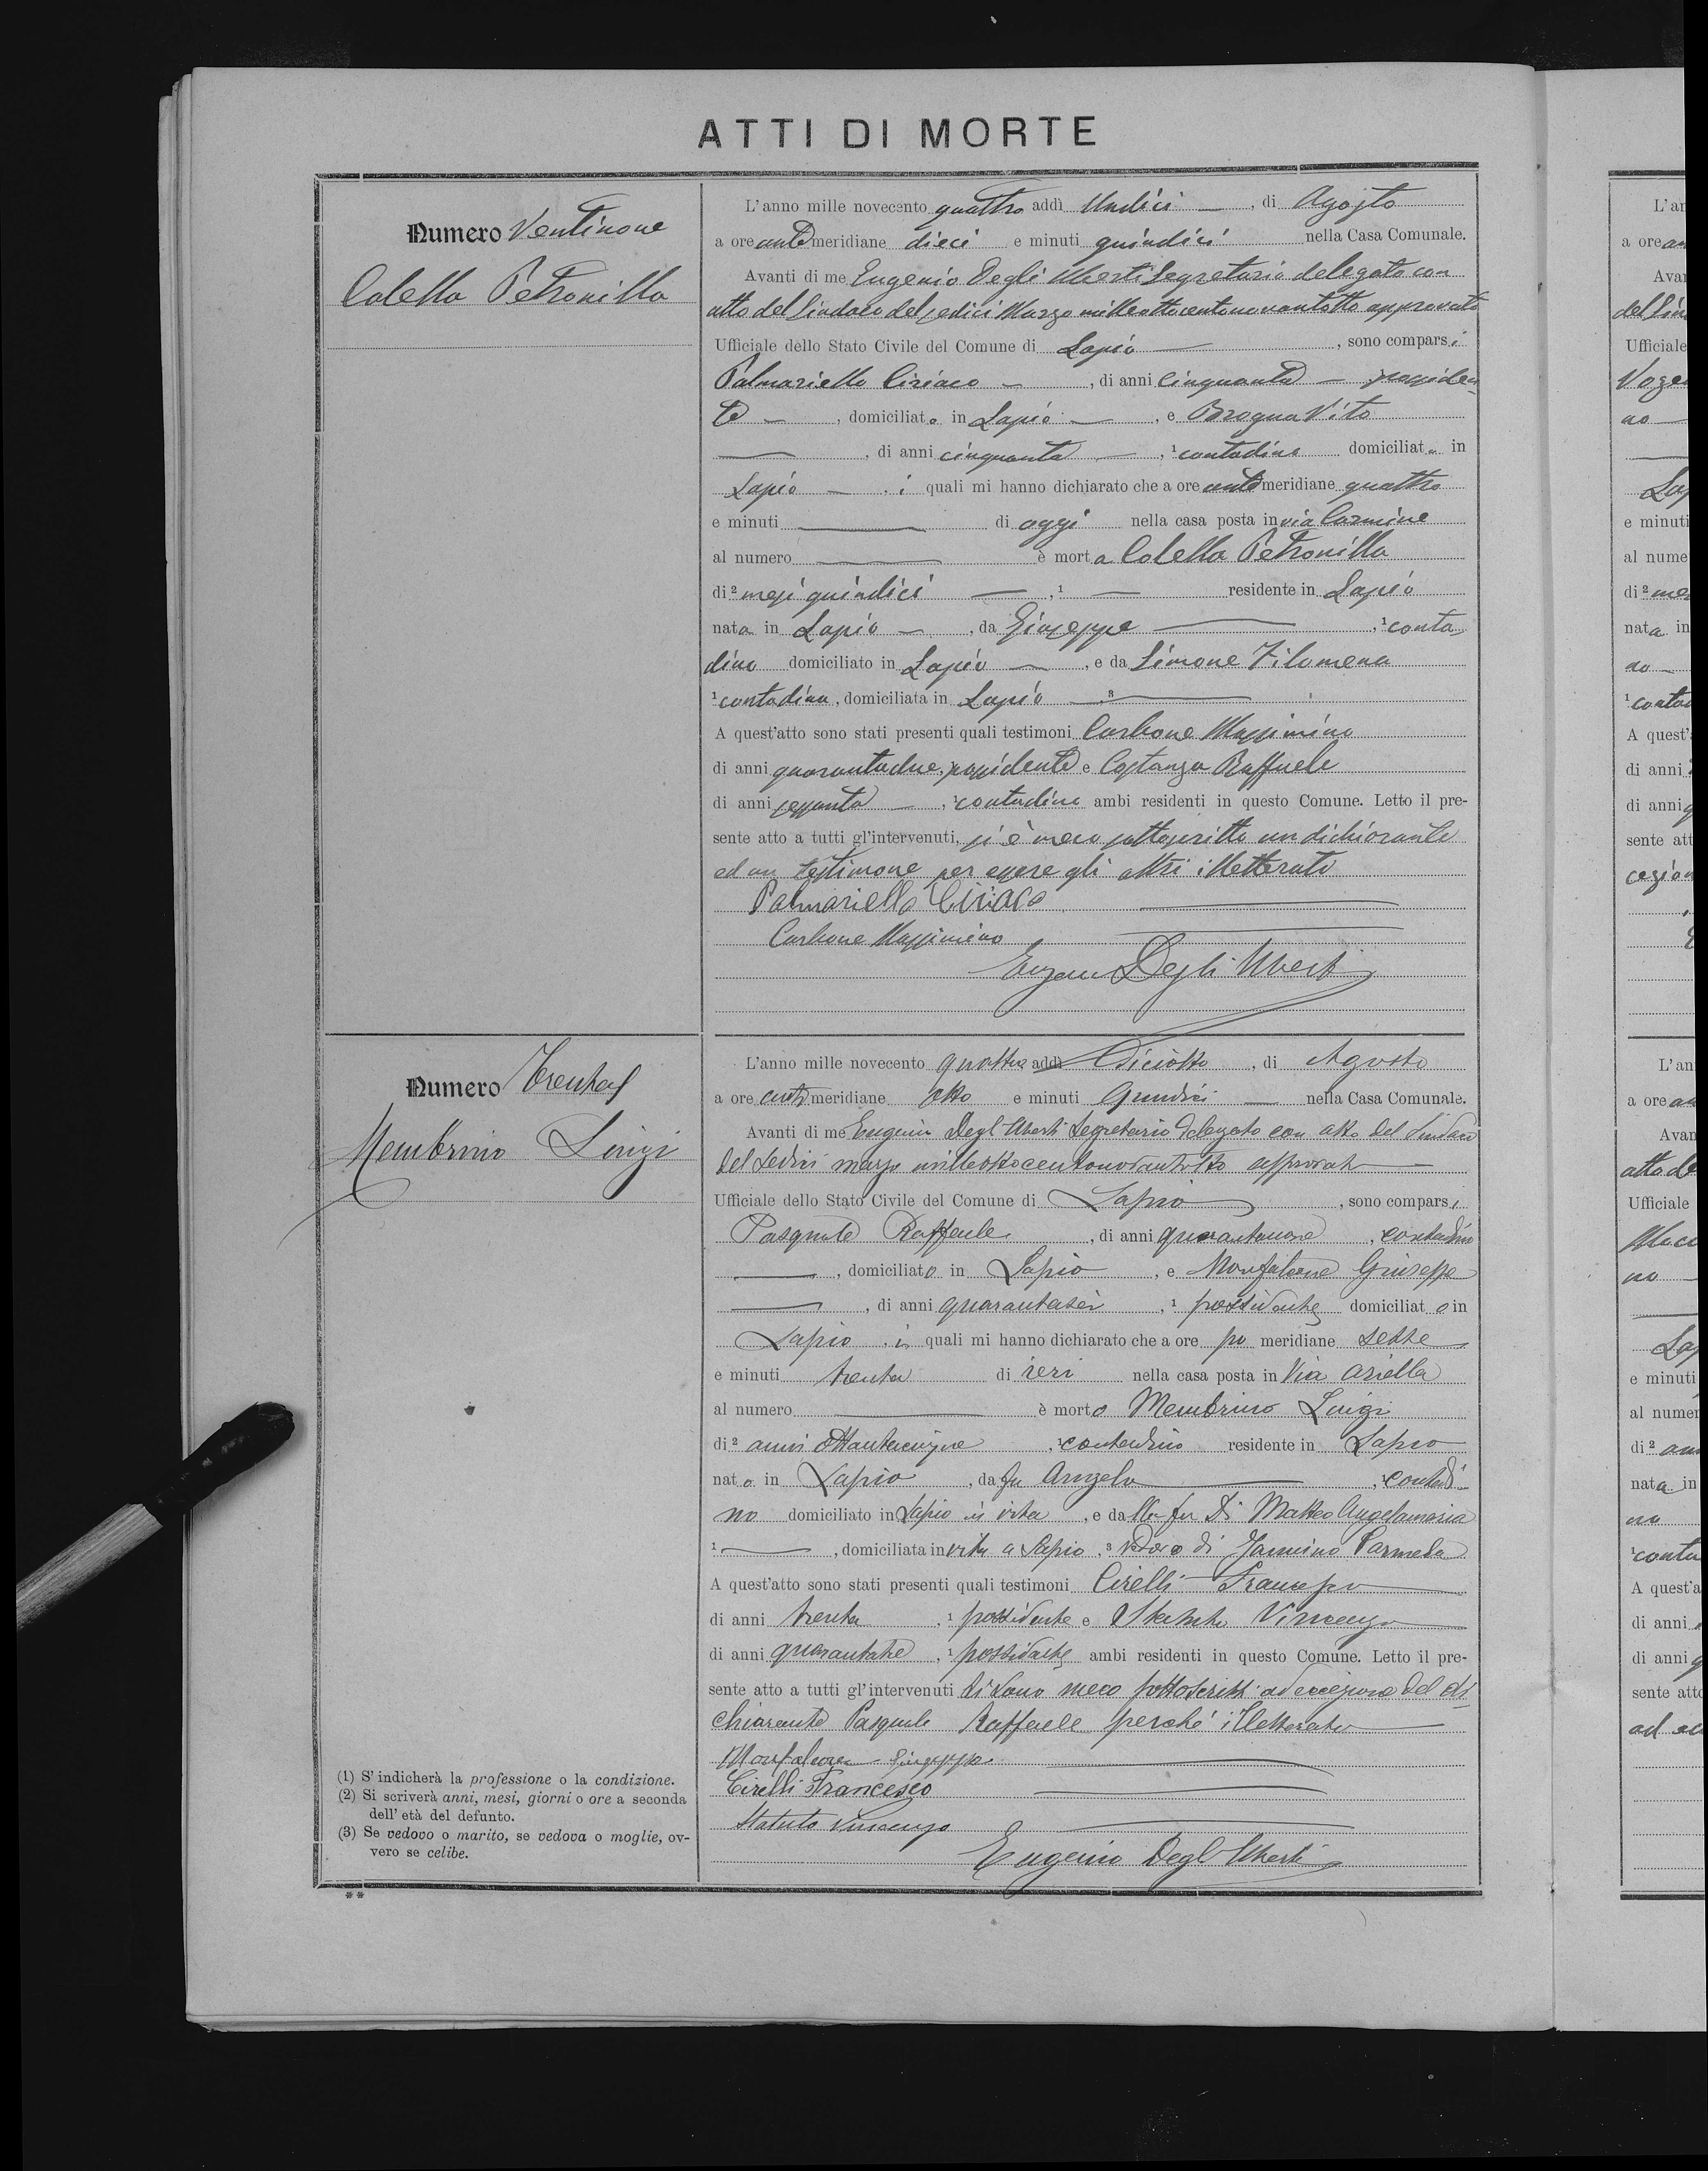 ATTI DI MORTE
Numero Ventinove
Colella Petronilla
L'anno mille novecento quattro addì Undici — , di Agosto
a ore antemeridiane dieci e minuti quindici nella Casa Comunale.
Avanti di me Eugenio Degli Uberti Segretario delegato con
atto del Sindaco del sedici Marzo milleottocentonovantotto approvato
Ufficiale dello Stato Civile del Comune di Lapio — , sono comparsi
Palmariello Ciriaco — , di anni cinquanta — possiden
te — , domiciliato in Lapio — , e Brogna Vito
— , di anni cinquanta — , ¹ contadino domiciliato in
Lapio — . i quali mi hanno dichiarato che a ore antemeridiane quattro
e minuti — di oggi nella casa posta in via Carmine
al numero — è morta Colella Petronilla
di ² mesi quindici — , ¹ — residente in Lapio
nata in Lapio — , da Giuseppe — , ¹ conta
dino domiciliato in Lapio — , e da Simone Filomena
¹ contadina, domiciliata in Lapio — ³ —
A quest'atto sono stati presenti quali testimoni Carbone Massimino
di anni quarantadue, possidente e Costanza Raffaele
di anni sessanta — , ¹ contadino ambi residenti in questo Comune. Letto il pre-
sente atto a tutti gl'intervenuti, si è meco sottoscritto un dichiarante
ed un testimone per essere gli altri illetterati
Palmariello Ciriaco
Carbone Massimino
Eugenio Degli Uberti
Numero Trenta
Membrino Luigi
L'anno mille novecento quattro addì Diciotto , di Agosto
a ore antimeridiane otto e minuti Quindici — nella Casa Comunale.
Avanti di me Eugenio Degl'Uberti Segretario delegato con atto del Sindaco
del Sedici marzo milleottocentonovantotto approvato —
Ufficiale dello Stato Civile del Comune di Lapio , sono comparsi
Pasquale Raffaele , di anni quarantanove , contadino
— , domiciliato in Lapio , e Monfalcone Giuseppe
— , di anni quarantasei , ¹ possidente domiciliato in
Lapio . i quali mi hanno dichiarato che a ore po meridiane sette
e minuti trenta di ieri nella casa posta in Via Ariella
al numero — è morto Membrino Luigi
di ² anni ottantacinque , ¹ contadino residente in Lapio
nato in Lapio , da fu Angelo — , ¹ contadi
no domiciliato in Lapio in vita , e dalla fu Di Matteo Angelamaria
¹ — , domiciliata in vita a Lapio . ³ vedovo di Iannino Carmela
A quest'atto sono stati presenti quali testimoni Cirelli Francesco —
di anni trenta , ¹ possidente e Statuto Vincenzo —
di anni quarantatre , ¹ possidente ambi residenti in questo Comune. Letto il pre-
sente atto a tutti gl'intervenuti si sono meco sottoscritti ad eccezione del di
chiarante Pasquale Raffaele perché illetterato —
Monfalcone Giuseppe
Cirelli Francesco
Statuto Vincenzo
Eugenio Degl'Uberti
(1) S'indicherà la professione o la condizione.
(2) Si scriverà anni, mesi, giorni o ore a seconda
dell'età del defunto.
(3) Se vedovo o marito, se vedova o moglie, ov-
vero se celibe.
**
L'an
a ore an
Avan
del Sin
Ufficiale
no
Lap
e minuti
al nume
di ²
nata in
no
¹ conta
A quest'
di anni
di anni
sente att
cezion
L'an
a ore a
Avan
atto de
Ufficiale
no
La
e minuti
al numer
di ² an
nata in
no
¹ conta
A quest'a
di anni
di anni
sente atto
ad ec